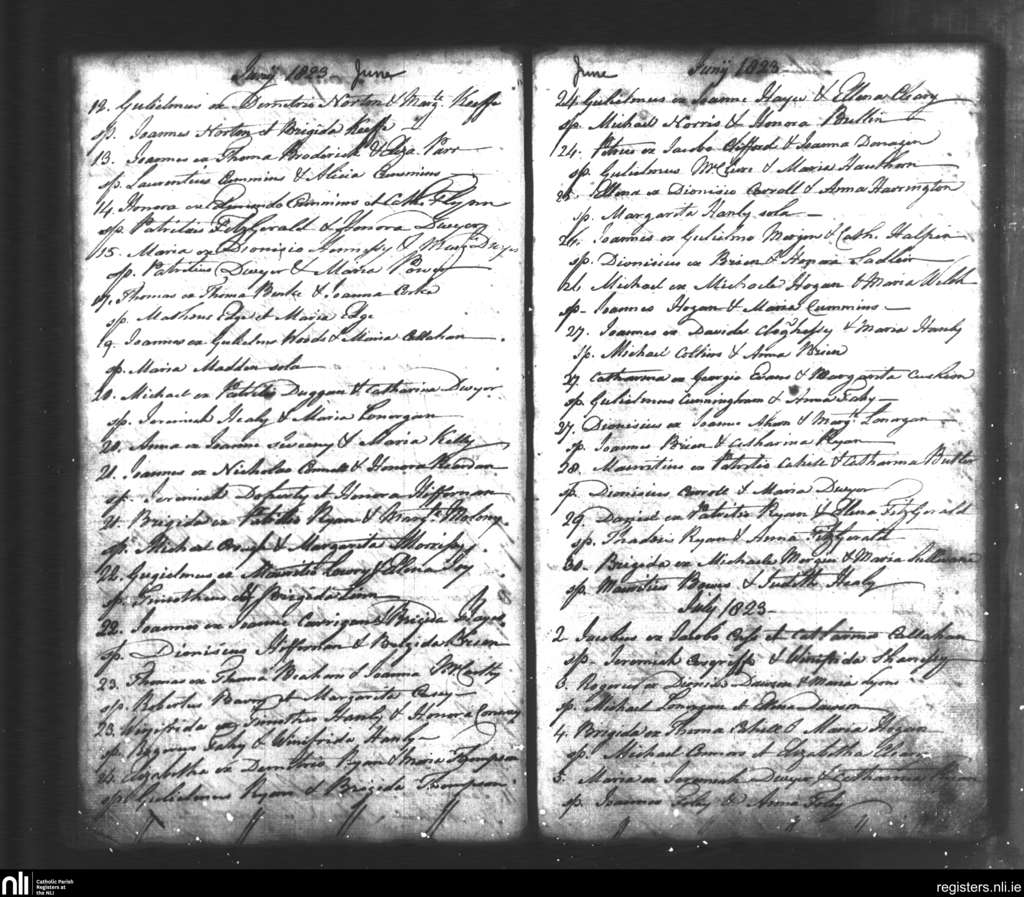 Junij 1823 June
12. Gulielmus ex Demetrio Norton & Margt. Keeffe
sp. Joannes Norton et Brigida Keeffe
13. Joannes ex Thoma Broderick & Eliza. Parr
sp. Laurentius Cummins & Alicia Cummins
14. Honora ex Cummins et Cathe. Flynn
sp. Patritius FitzGerald & Honora Dwyer
15. Maria ex Dionisio Hennessy & Margt. Dwyer
sp. Patritius Dwyer & Maria Power
17. Thomas ex Thoma Burke & Joanna
sp. Matheus Edge et Maria Edge
19. Joannes ex Gulielmo Woods & Maria Callahan
sp. Maria Madden sola
20. Michael ex Patritio Duggan & Catharina Dwyer
sp. Jeremiah Healy & Maria Lonorgan
20. Anna ex Joanne & Maria Kelly
21. Joannes ex Nicholao & Honora Reardan
sp. Jeremiah Doherty et Honora Heffernan
21. Brigida ex Patritio Ryan & Margt. Molony
sp. Michael & Margarita
22. Gugielmus ex Mauritio Lowry & Ellena
sp. Timotheus & Brigida
22. Joannes ex Joanne Corrigan & Brigida Hayes
sp. Dionisius Heffernan & Brigida Brien
23. Thomas ex Thoma Meahan & Joanna McCarthy
sp. Robertus Barry et Margarita Casey
23. Winifrida ex Timotheo Hanly & Honora Conway
sp. Rogerus Fahy & Winifrida Hanly
24. Elizabetha ex Demetrio Ryan & Maria Thompson
sp. Gulielmus Ryan & Brigida Thompson
June Junij 1823
24. Gulielmus ex Joanne Hayes & Ellena Cleary
sp. Michael Norris & Honora
124. Petrus ex Jacobo Clifford & Joanna Donagan
sp. Gulielmus McCuire & Maria Hawthorn
25. Ellena ex Dionisio Carroll & Anna Harrington
sp. Margarita Hanly sola
26. Joannes ex Gulielmo & Cath. Halpin
sp. Dionisius ex Brien & Honora
26. Michael ex Michaele Hogan & Maria Welsh
sp. Joannes Hogan & Maria Cummins
27. Joannes ex Davide Cloghessy & Maria Hanly
sp. Michael Collins & Anna Brien
27. Catharina ex Georgio Evans & Margarita
sp. Gulielmus Cunningham & Anna Fahy
27. Dionisius ex Joanne & Margt. Lonorgan
sp. Joannes Brien & Catharina Ryan
28. Mauritius ex Patritio Cahill & Catharina Butler
sp. Dionisius Carroll & Maria Dwyer
29. Daniel ex Patritio Ryan & Elena FitzGerald
sp. Thadeus Ryan & Anna FitzGerald
30. Brigida ex Michaele & Maria Sullivane
sp. Mauritius & Judith Healy
July 1823
2 Jacobus ex Jacobo et Catharina Callahan
sp. Jeremiah Cosgriffe & Winifrida
3. Rogerus ex Dionisio Dawson & Maria Lyons
sp. Michael Lonorgan et Ellena Dawson
4. Brigida ex Thoma Cahill & Maria Hogan
sp. Michael Connors et Elizabetha
5. Maria ex Jeremiah Dwyer & Catharina
sp. Joannes Foley & Anna Foley
nli Catholic Parish
Registers at
the NLI
registers.nli.ie